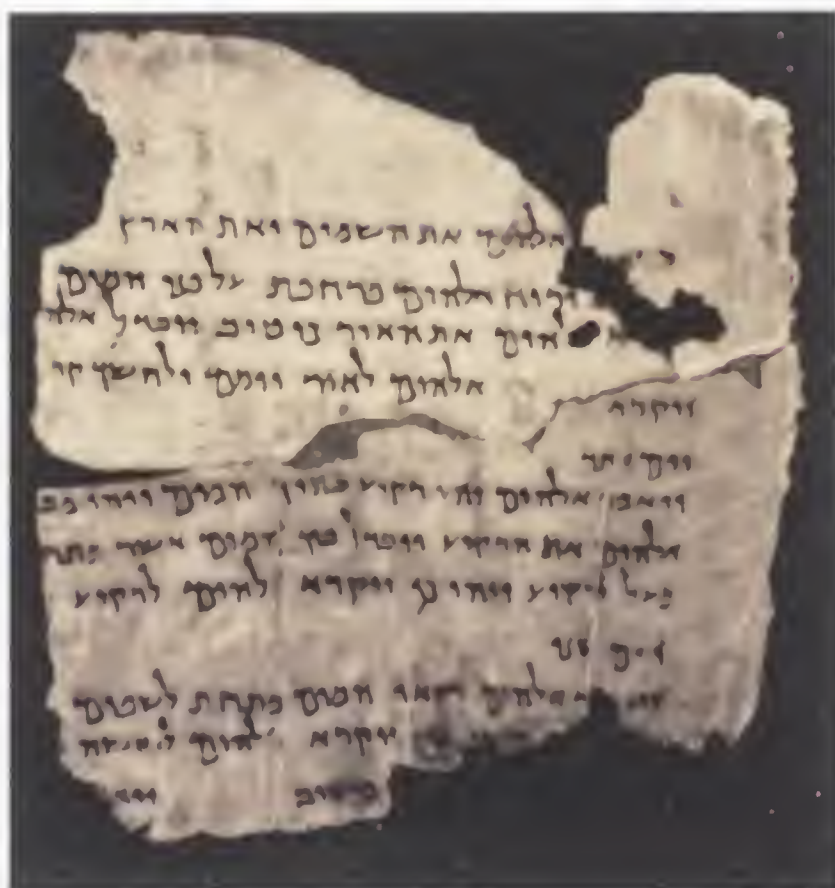 אלהים את השמים ואת הארץ
ורוח אלהים מרחפת על פני המים
להים את האור כי טוב ויבדל אלה
ויקרא אלהים לאור יומם ולחשך קר
יום אחד
ויאמר אלהים יהי רקיע בתוך המים ויהי מב
אלהים את הרקיע ויבדל בין המים אשר מתח
מעל לרקיע ויהי כן ויקרא אלהים לרקיע
יום שני
אלהים המים מתחת לשמים
יקרא אלהים ליבשה
כי טוב